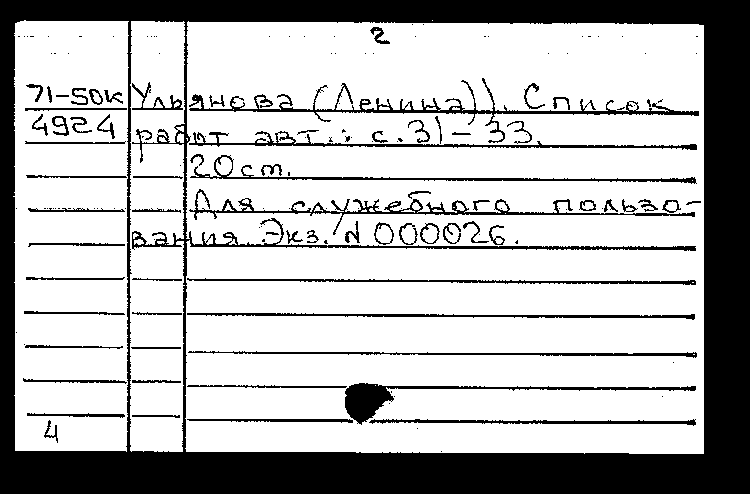 2
71-50к Ульянова (Ленина)). Список
4924 работ авт.: с. 31-33.
20 ст.
Для служебного пользо-
вания. Экз. N 000026.
4